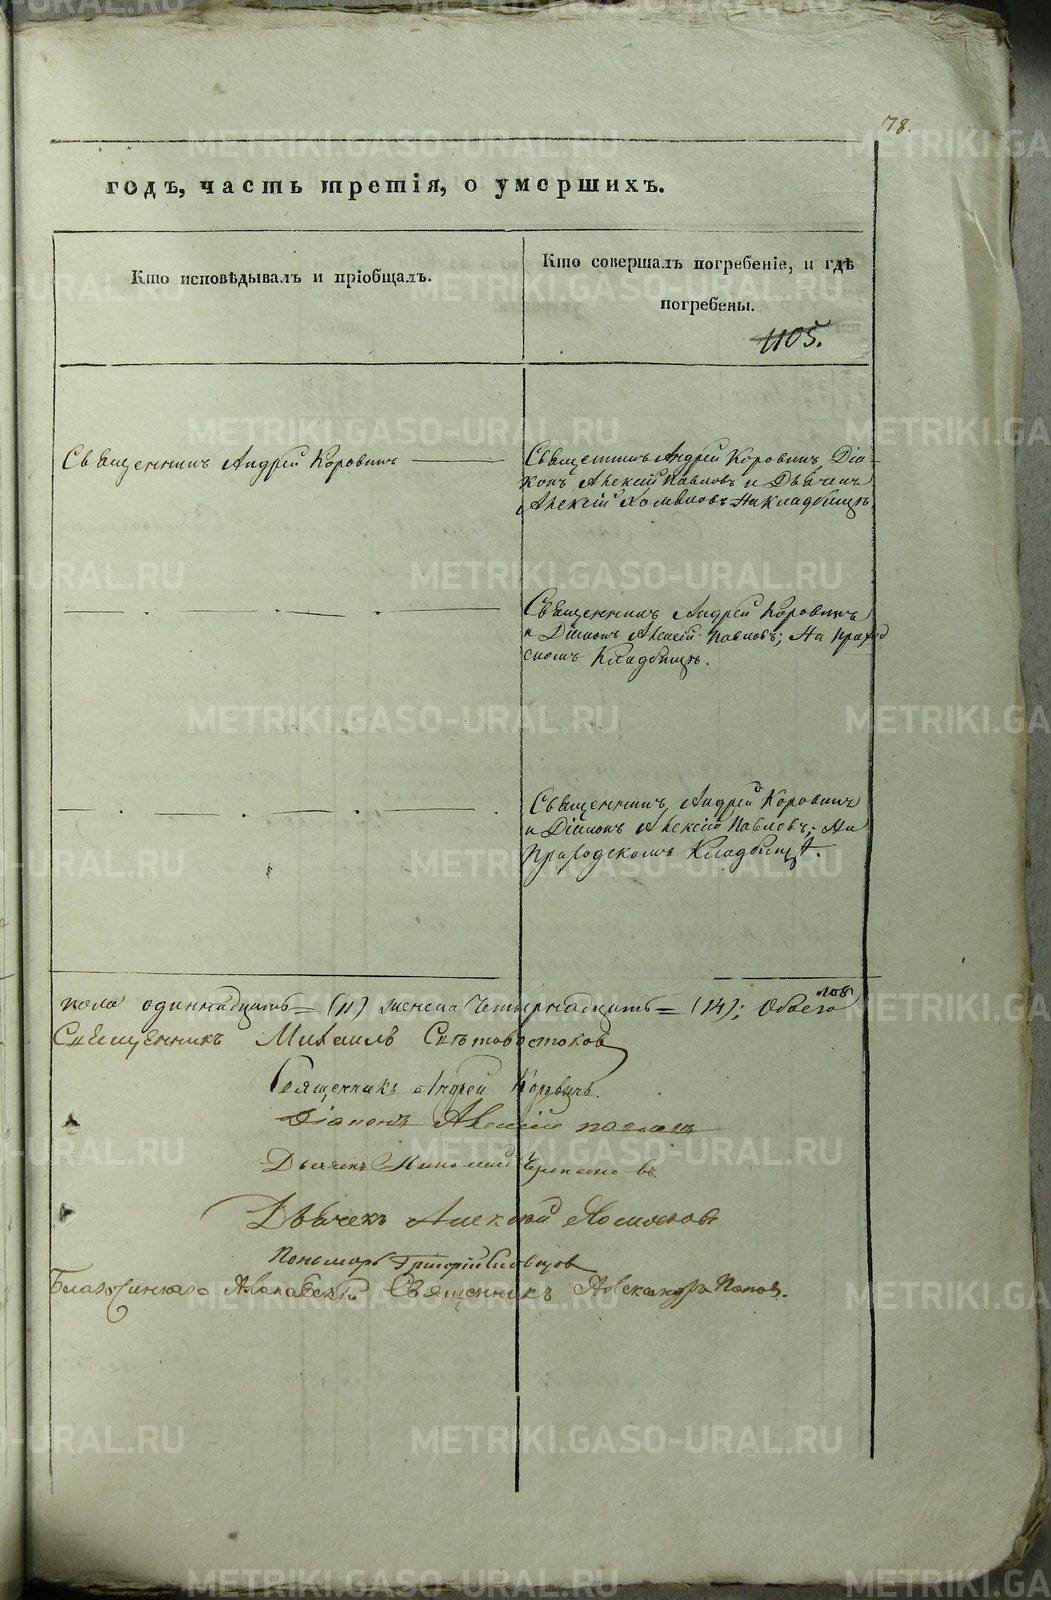 78.
годъ, часть третія, о умершихъ.
Кто исповѣдывалъ и пріобщалъ.
Кто совершалъ погребеніе, и гдѣ
погребены.
1105.
Священникъ Андрей Коровинъ
Священникъ Андрей Коровинъ, Діа-
конъ Алексій Павловъ и Дьячекъ
Алексій На кладбищѣ.
Священникъ Андрей Коровинъ
и Діаконъ Алексій Павловъ; На приход
скомъ Кладбищѣ.
Священникъ Андрей Коровинъ
и Діаконъ Алексій Павловъ; На
Приходскомъ Кладбищѣ.
пола одиннадцать = (11) женска Четырнадцать = (14); Обоего
Священникъ Михаилъ Свѣтовостоков
Священникъ Андрей Коровинъ.
Діаконъ Алексій Павловъ
Дьячекъ
Дьячекъ Алексий
Пономарь Григорій Словцов
Священникъ Александръ Попов.
METRIKI.GASO-URAL.RU